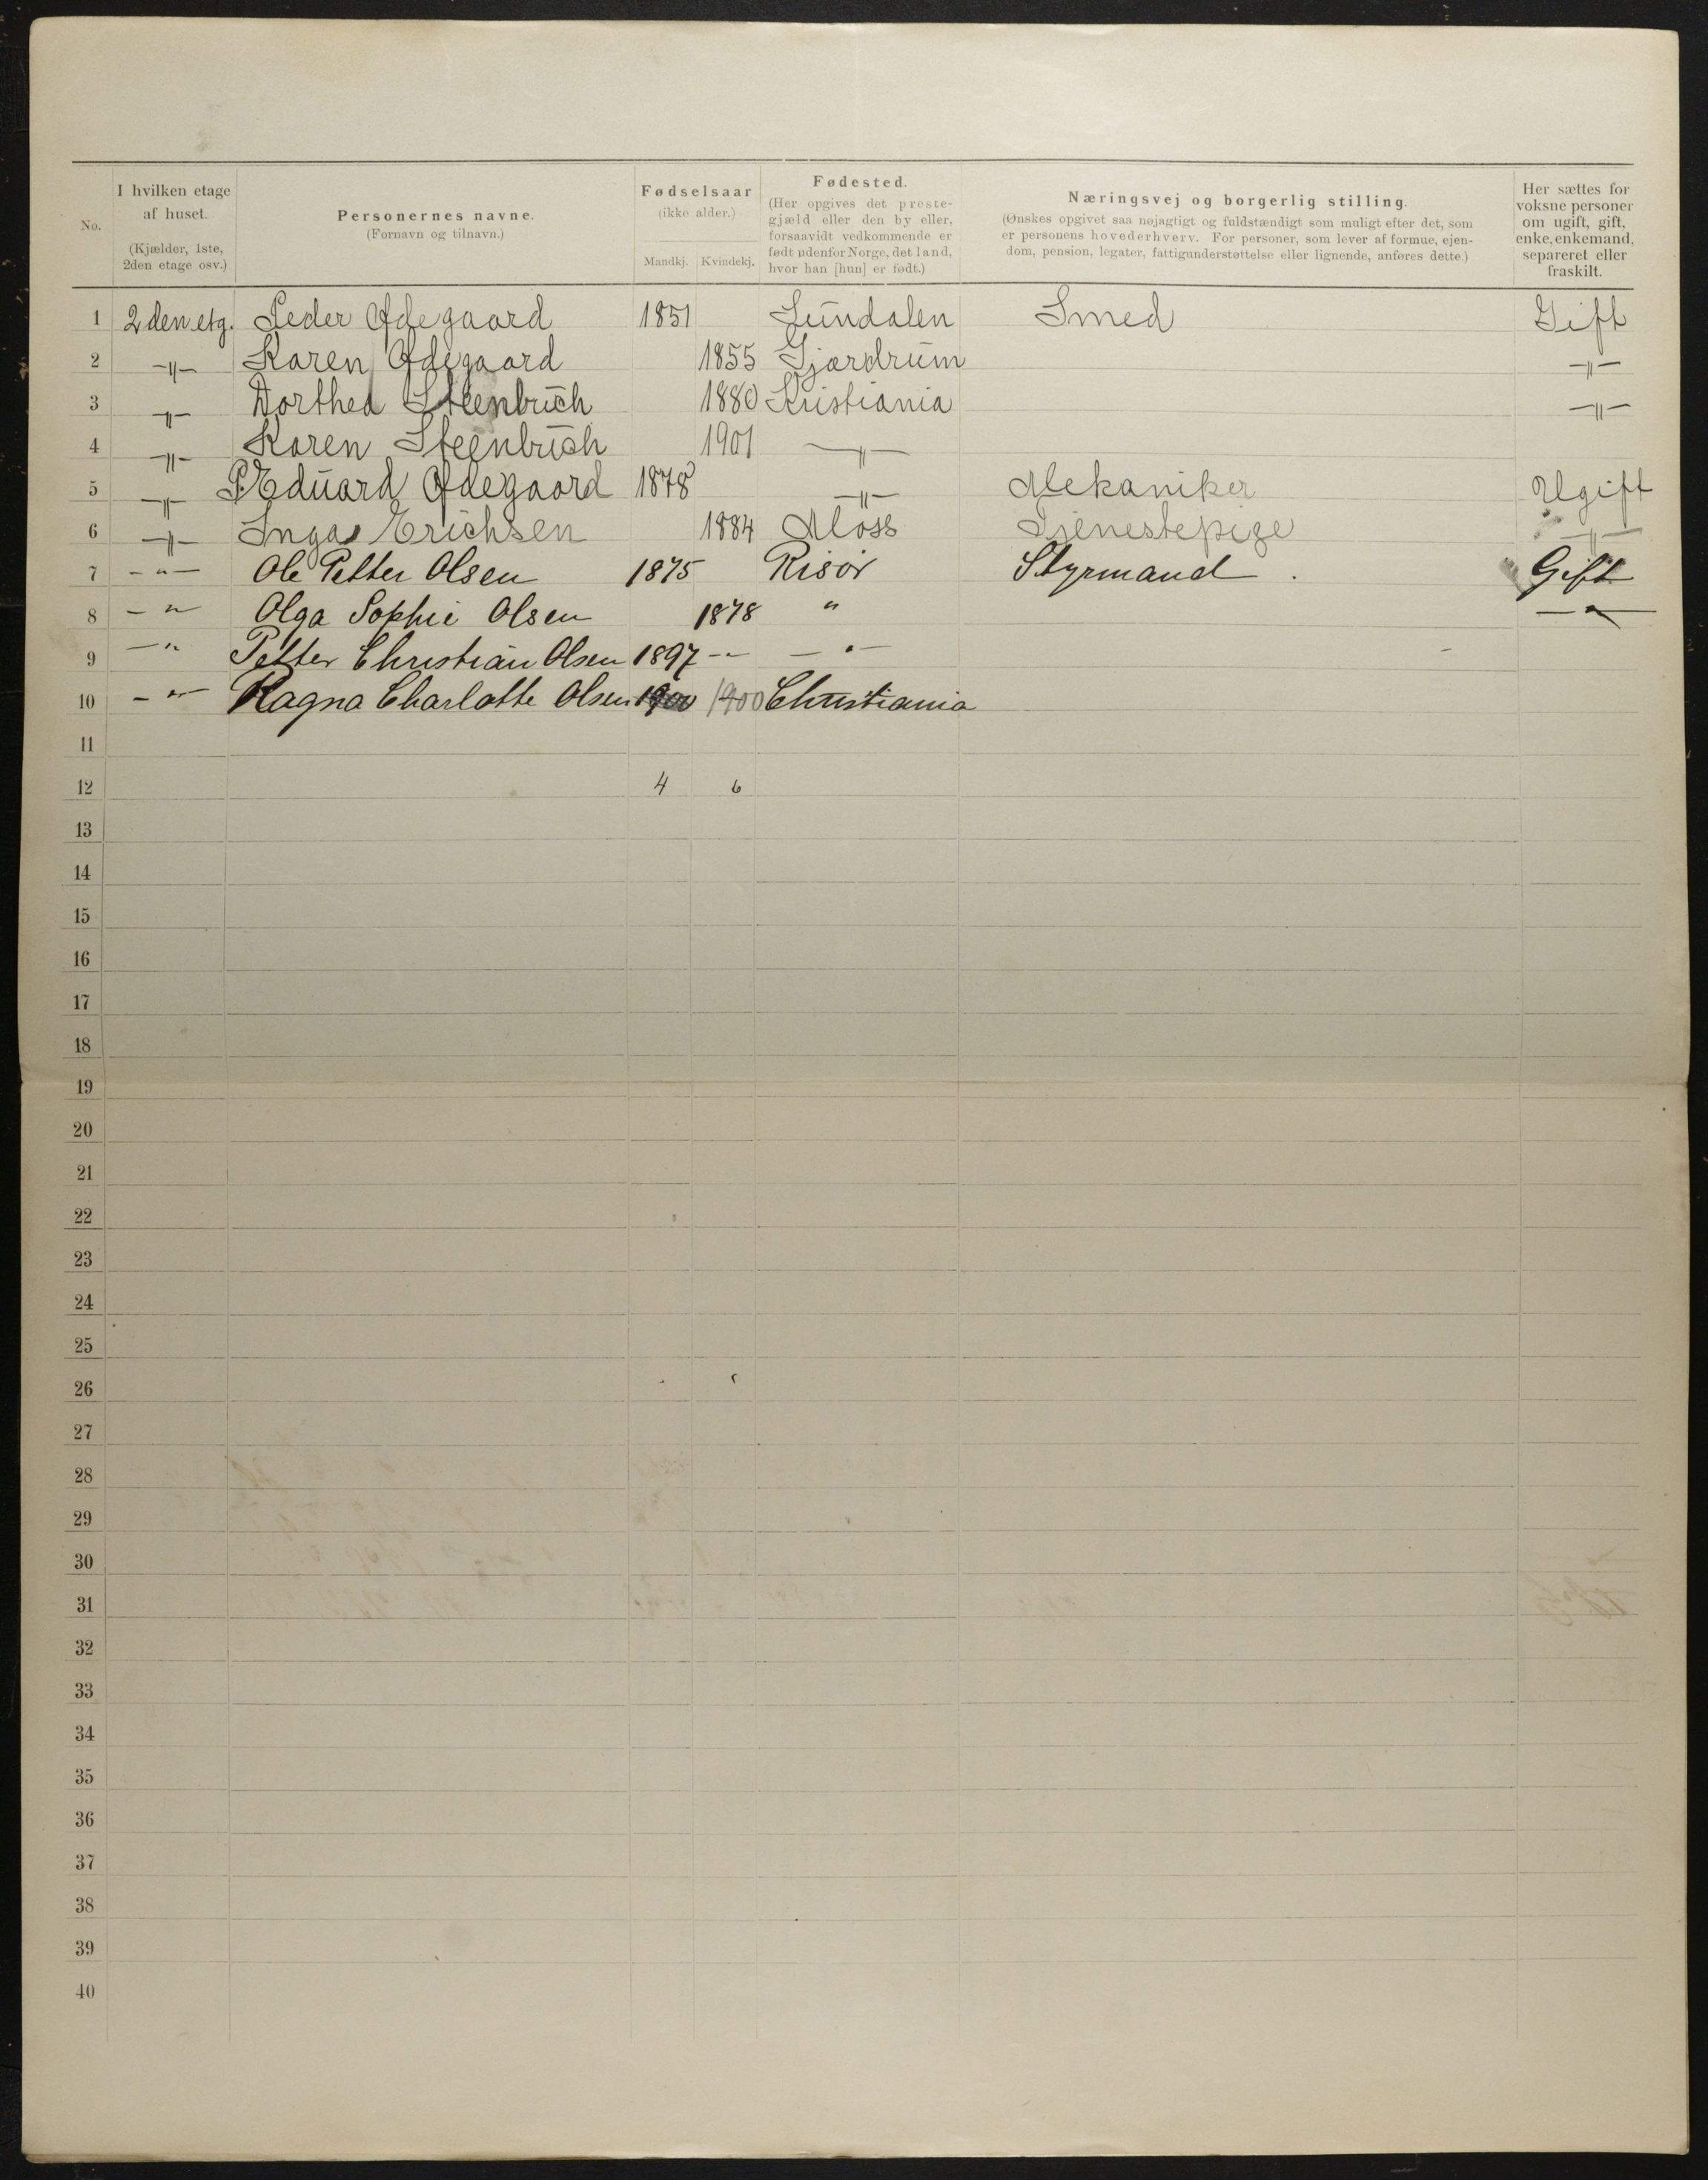 No.
I hvilken etage af huset. (Kjælder, 1ste, 2den etage osv.)
Personernes navne. (Fornavn og tilnavn.)
Fødselsaar (ikke alder.) Mandkj. Kvindekj.
Fødested. (Her opgives det prestegjæld eller den by eller, forsaavidt vedkommende er født udenfor Norge, det land, hvor han [hun] er født.)
Næringsvej og borgerlig stilling. (Ønskes opgivet saa nøjagtigt og fuldstændigt som muligt efter det, som er personens hovederhverv. For personer, som lever af formue, ejendom, pension, legater, fattigunderstøttelse eller lignende, anføres dette.)
Her sættes for voksne personer om ugift, gift, enke, enkemand, separeret eller fraskilt.
1 2den etg. Peder Ødegaard 1851 Smed Gift
2 -"- Karen Ødegaard 1855 Gjærdrum -"-
3 -"- Dorthea Steenbuch 1880 Kristiania -"-
4 -"- Karen Steenbuch 1901 -"-
5 -"- P. Eduard Ødegaard 1878 -"- Mekaniker Ugift
6 -"- Inga Erichsen 1884 Moss Tjenestepige -"-
7 -"- Ole Petter Olsen 1875 Risör Styrmand. Gift
8 -"- Olga Sophie Olsen 1878 " -"-
9 -"- Petter Christian Olsen 1897 -- -"-
10 -"- Ragna Charlotte Olsen 1900 1900 Christiania
11
12 4 6
13
14
15
16
17
18
19
20
21
22
23
24
25
26
27
28
29
30
31
32
33
34
35
36
37
38
39
40